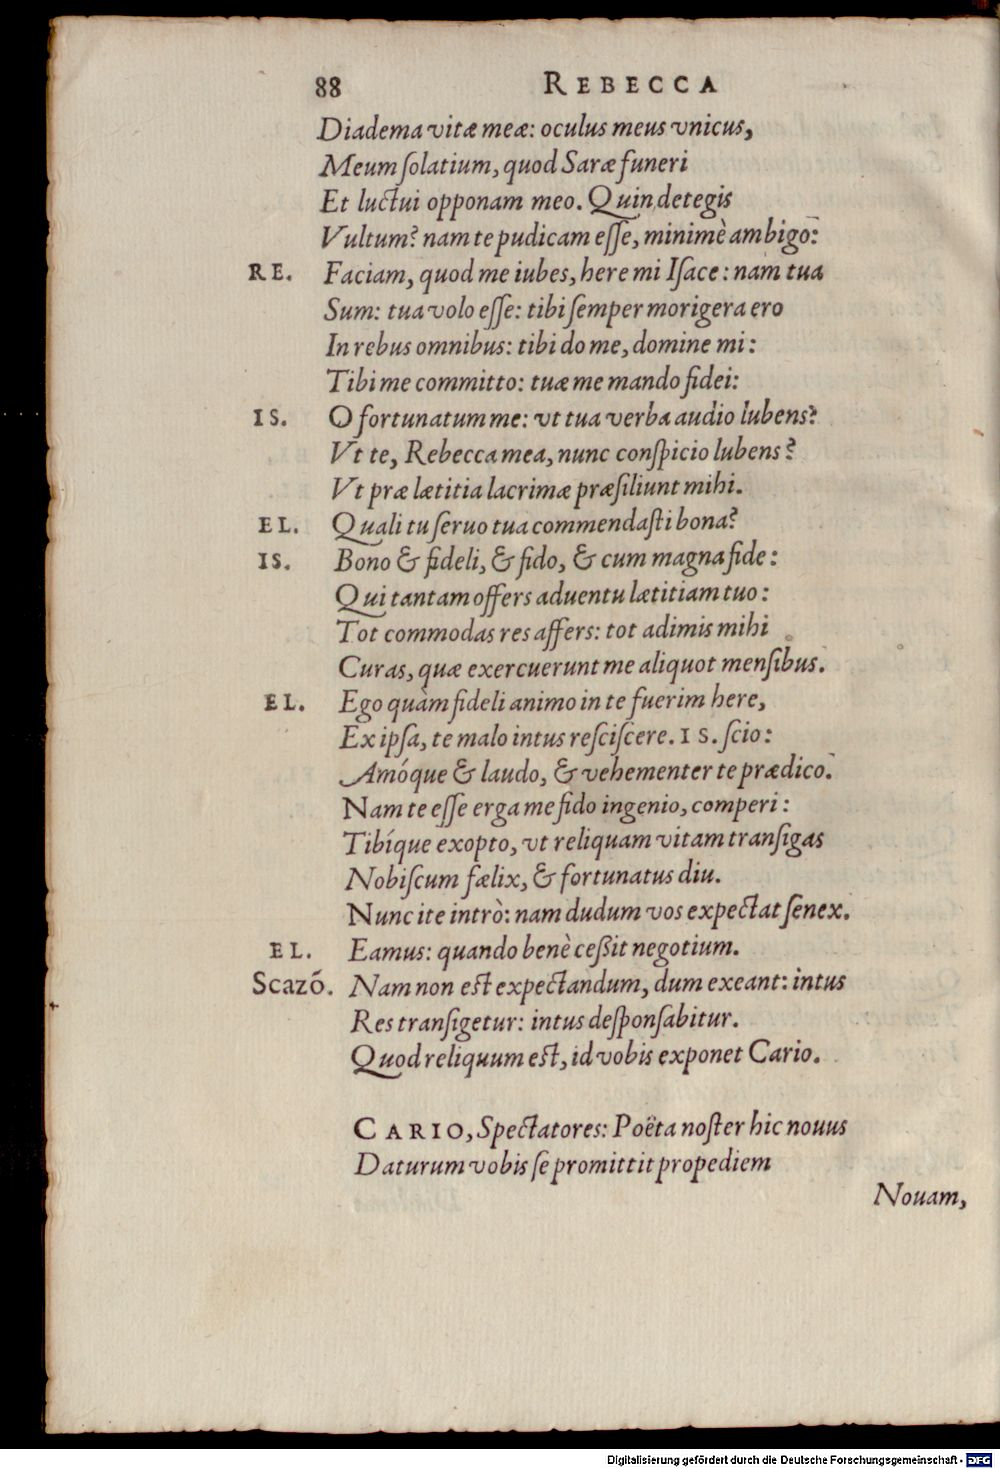 88 REBECCA
Diadema vitæ meæ: oculus meus vnicus,
Meum ſolatium, quod Saræ funeri
Et luctui opponam meo. Quin detegis
Vultum? nam te pudicam eſſe, minimè ambigo:
RE. Faciam, quod me iubes, here mi Iſace: nam tua
Sum: tua volo eſſe: tibi ſemper morigera ero
In rebus omnibus: tibi do me, domine mi:
Tibi me committo: tuæ me mando fidei:
IS. O fortunatum me: vt tua verba audio lubens?
Vt te, Rebecca mea, nunc conſpicio lubens?
Vt præ lætitia lacrimæ præſiliunt mihi.
EL. Quali tu ſeruo tua commendaſti bona?
IS. Bono & fideli, & fido, & cum magna fide:
Qui tantam offers aduentu lætitiam tuo:
Tot commodas res affers: tot adimis mihi
Curas, quæ exercuerunt me aliquot menſibus.
EL. Ego quàm fideli animo in te fuerim here,
Ex ipſa, te malo intus reſciſcere. IS. ſcio:
Amóque & laudo, & vehementer te prædico.
Nam te eſſe erga me fido ingenio, comperi:
Tibíque exopto, vt reliquam vitam tranſigas
Nobiſcum fælix, & fortunatus diu.
Nunc ite intrò: nam dudum vos expectat ſenex.
EL. Eamus: quando benè ceßit negotium.
Scazō. Nam non eſt expectandum, dum exeant: intus
Res tranſigetur: intus deſponſabitur.
Quod reliquum eſt, id vobis exponet Cario.
CARIO, Spectatores: Poëta noſter hic nouus
Daturum vobis ſe promittit propediem
Nouam,
Digitalisierung gefördert durch die Deutsche Forschungsgemeinschaft - DFG